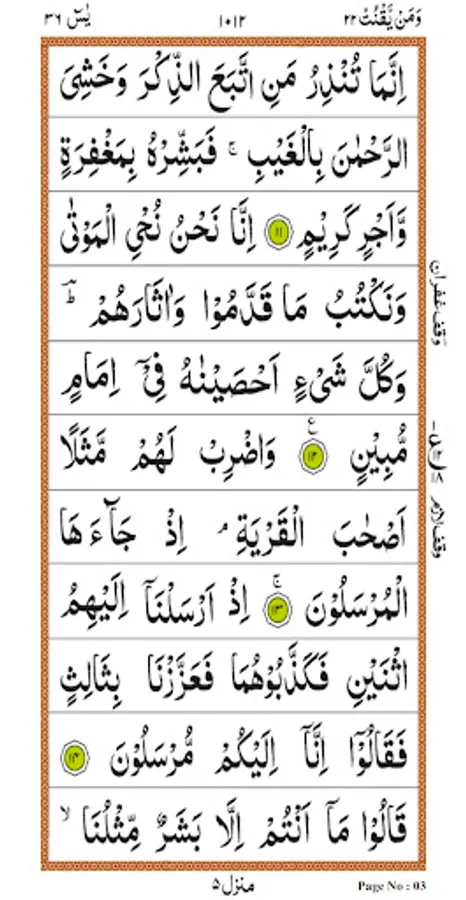 وَمَنْ يَّقْنُتْ ٢٢ ١٠١٢ يٰسٓ ٣٦
اِنَّمَا تُنْذِرُ مَنِ اتَّبَعَ الذِّكْرَ وَخَشِيَ
الرَّحْمٰنَ بِالْغَيْبِ ۚ فَبَشِّرْهُ بِمَغْفِرَةٍ
وَّاَجْرٍ كَرِيْمٍ ۝۱۱ اِنَّا نَحْنُ نُحْيِ الْمَوْتٰى
وَنَكْتُبُ مَا قَدَّمُوْا وَاٰثَارَهُمْ ؕ
وَكُلَّ شَيْءٍ اَحْصَيْنٰهُ فِيْٓ اِمَامٍ
مُّبِيْنٍ ۝۱۲ ع وَاضْرِبْ لَهُمْ مَّثَلًا
اَصْحٰبَ الْقَرْيَةِ ۘ اِذْ جَآءَهَا
الْمُرْسَلُوْنَ ۝۱۳ ۚ اِذْ اَرْسَلْنَاۤ اِلَيْهِمُ
اثْنَيْنِ فَكَذَّبُوْهُمَا فَعَزَّزْنَا بِثَالِثٍ
فَقَالُوْۤا اِنَّاۤ اِلَيْكُمْ مُّرْسَلُوْنَ ۝۱۴
قَالُوْا مَاۤ اَنْتُمْ اِلَّا بَشَرٌ مِّثْلُنَا ۙ
وقف غفران
وقف لازم
منزل ۵
Page No : 03